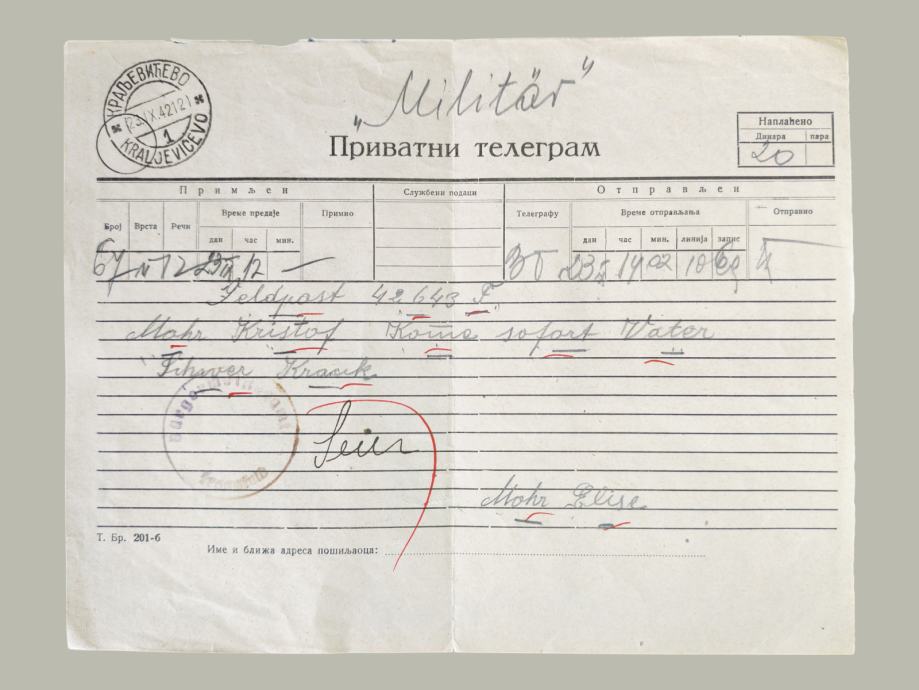 КРАЉЕВИЋЕВО
23.IX.42 12
1
KRALJEVIĆEVO
„Militär"
Приватни телеграм
Наплаћено
Динара пара
20
Примљен Службени подаци Отправљен
Број Врста Речи Време предаје Примио Телеграфу Време отправљања Отправио
дан час мин. дан час мин. линија запис
67 N 12 23 IX 12 — 23 IX 19 02
Feldpost 42643 F.
Mohr Kristof Kome sofort Vater
Krank
Mohr Elise
Т. Бр. 201-б
Име и ближа адреса пошиљаоца: